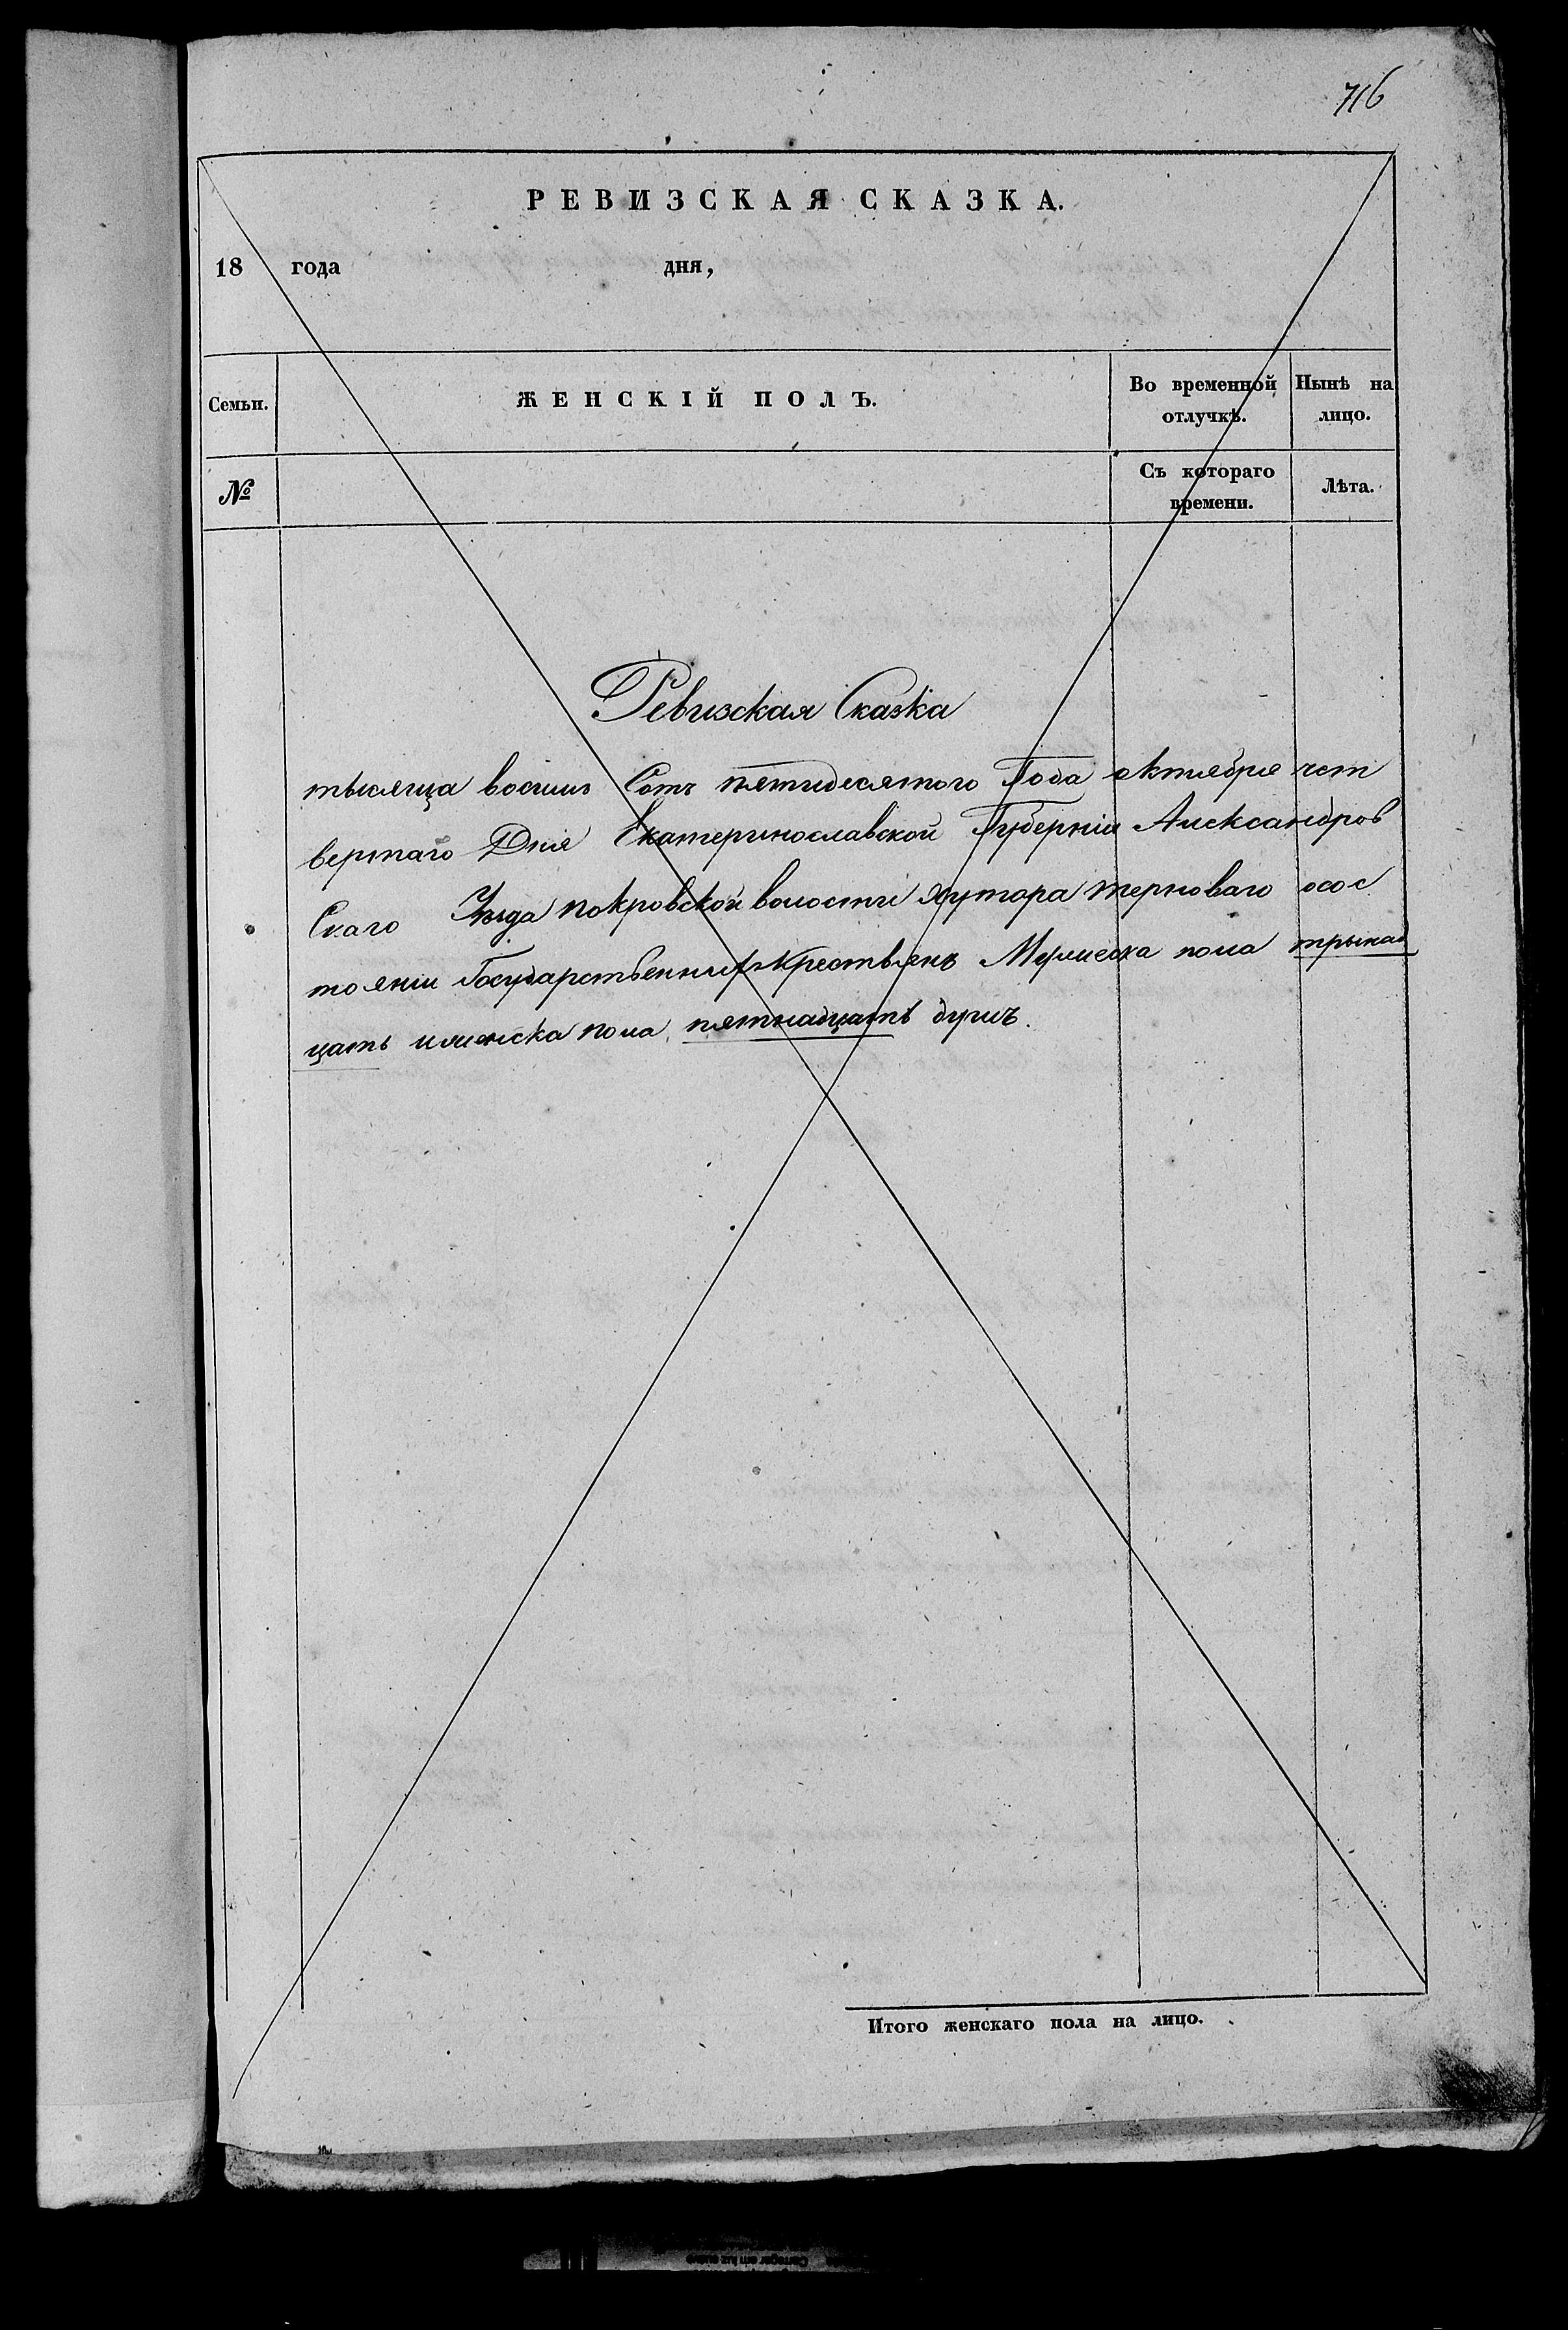 716
РЕВИЗСКАЯ СКАЗКА.
18 года дня,
Семьи. ЖЕНСКІЙ ПОЛЪ. Во временной отлучкѣ. Нынѣ на лицо.
№ Съ котораго времени. Лѣта.
Ревизская Сказка
тысяща восимъ Сотъ пятидесятого Года октября чет
вертаго Дня Екатеринославской Губерніи Александров
Скаго Уѣзда покровской волости хутора терноваго осос
тояніи Государственныхъ крестьянъ Мужеска пола трынад
цать иженска пола пятнадцать душъ.
Итого женскаго пола на лицо.